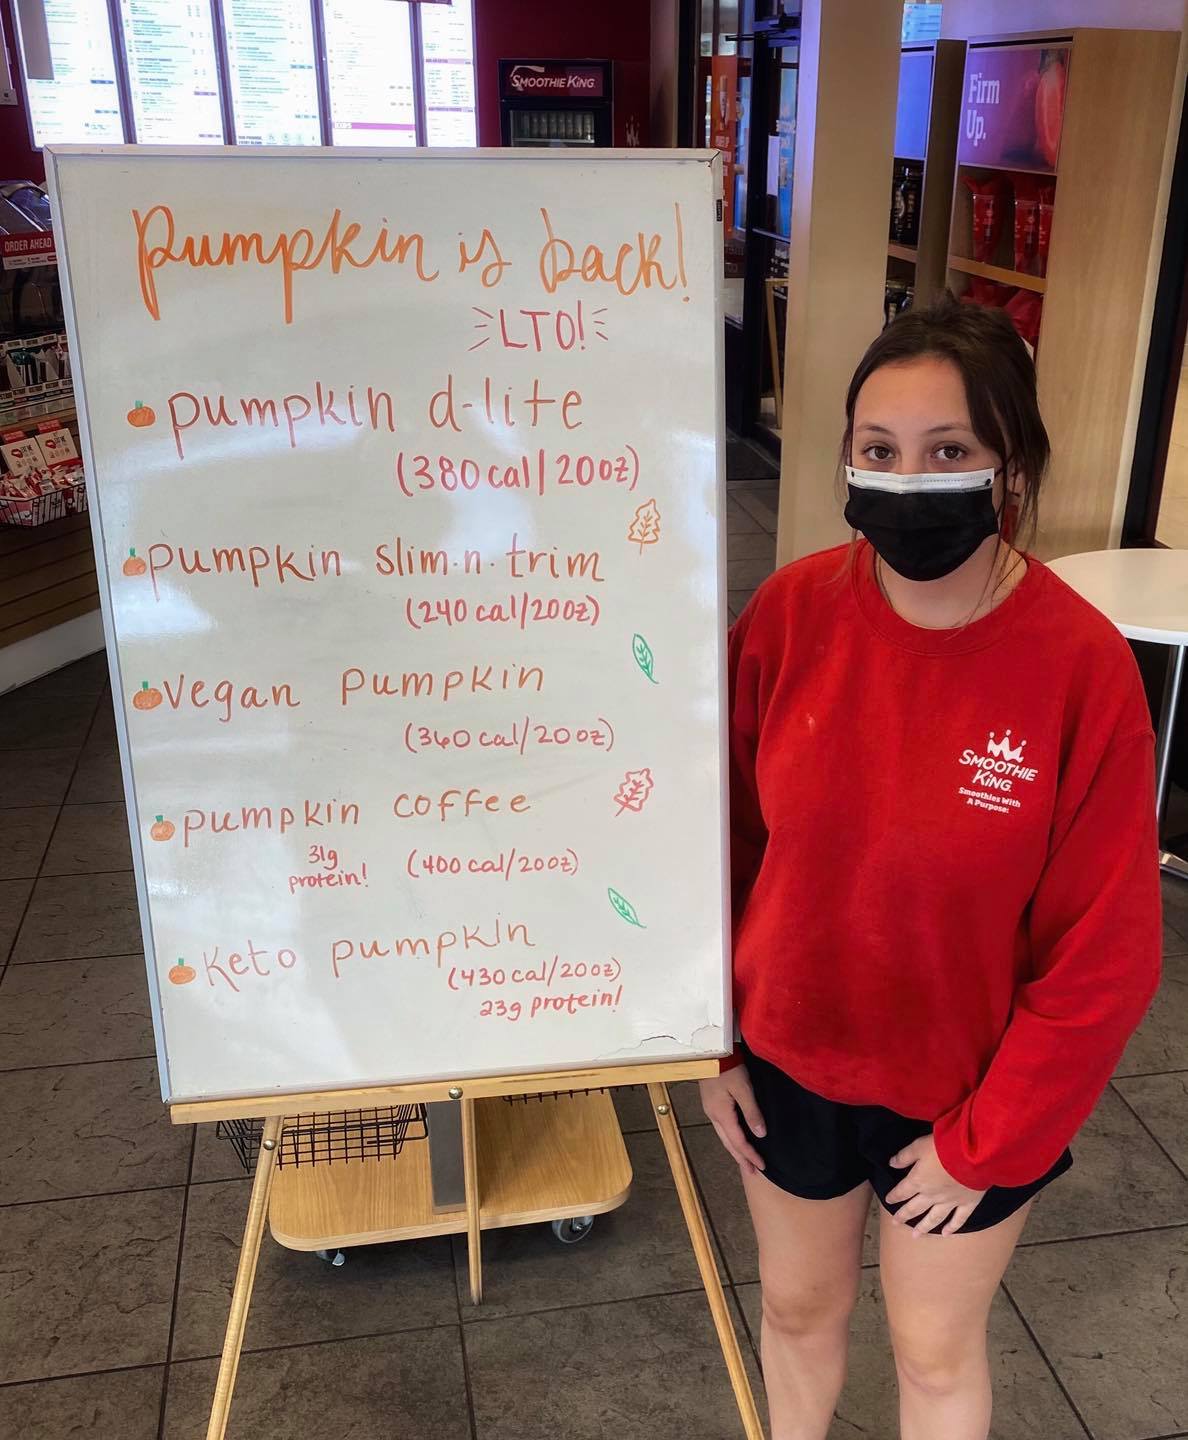 SMOOTHIE KING
Firm
Up.
ORDER AHEAD
pumpkin is back!
LTO!
pumpkin d-lite
(380 cal/20oz)
pumpkin slim·n·trim
(240 cal/20oz)
vegan pumpkin
(360 cal/20oz)
pumpkin coffee
31g
protein!
(400 cal/20oz)
keto pumpkin
(430 cal/20oz)
23g protein!
SMOOTHIE
KING
Smoothies With
A Purpose.